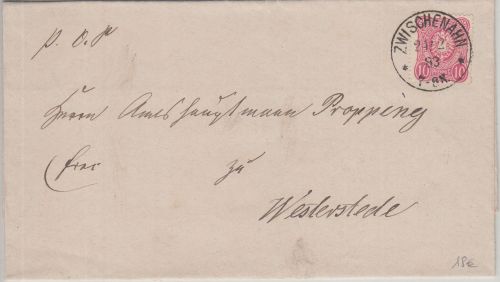 p. o. P
ZWISCHENAHN
83
7-8N.
10 10
Herrn Amtshauptmann Propping
frei
zu
Westerstede
18e